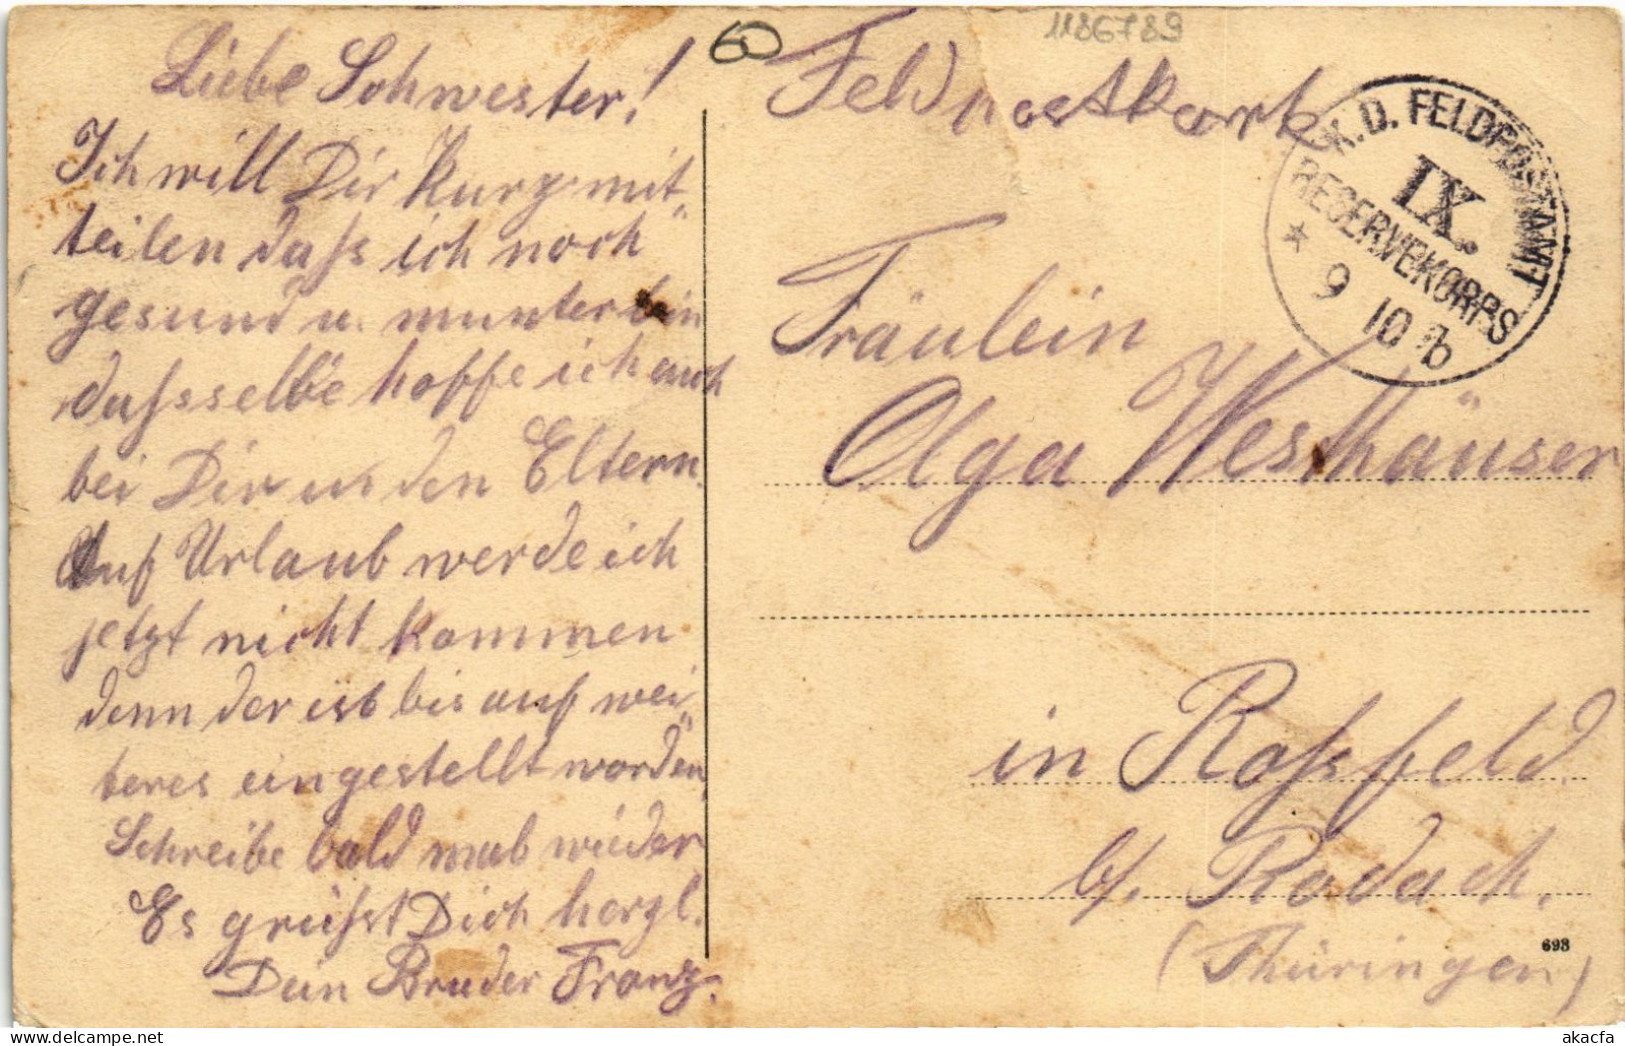 1186789
60
Feldpostkarte
K.D. FELDPOSTAMT
IX.
RESERVEKORPS
* 9 10
Liebe Schwester!
Ich will Dir kurz mit-
teilen daſs ich noch
gesund u. munter bin
daſsselbe hoffe ich auch
bei Dir u. den Eltern.
Auf Urlaub werde ich
jetzt nicht kommen
denn der ist bis auf wei-
teres eingestellt worden,
Schreibe bald mal wieder
Es grüſst Dich herzl.
Dein Bruder Franz.
Fräulein
Olga Westhäuser
in Roſsfeld.
b/. Rodach.
(Thüringen)
693
akacfa.com